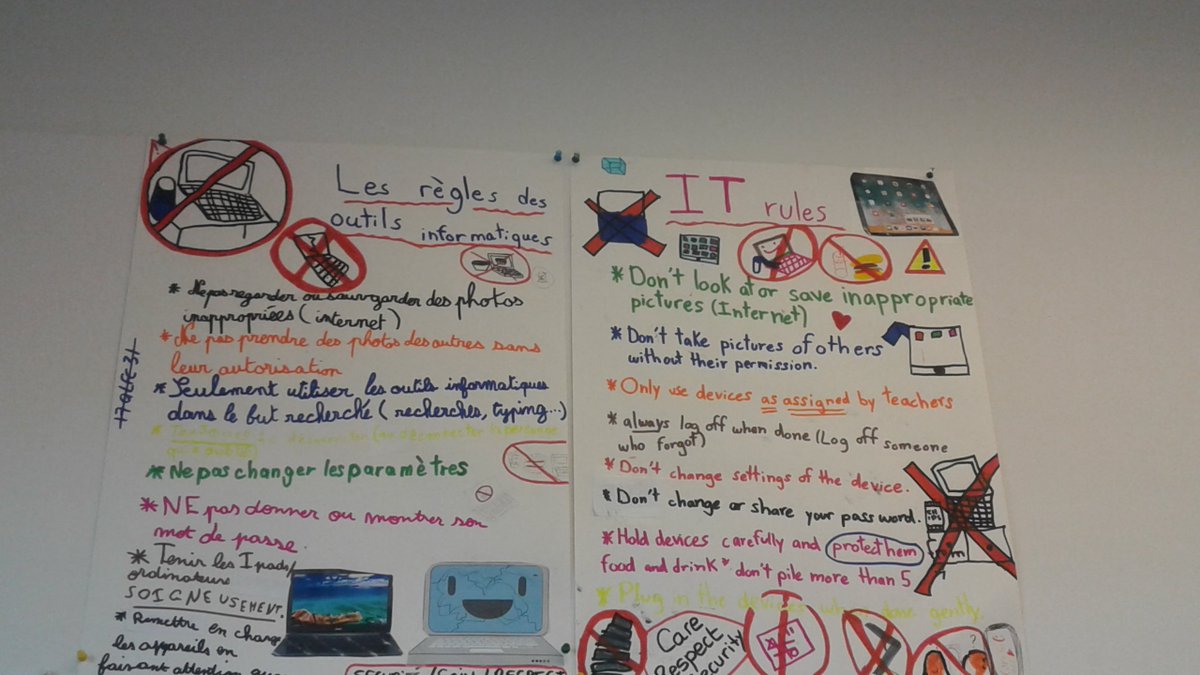 Les règles des
outils informatiques
* Ne pas regarder ou sauvgarder des photos
inappropriées ( internet )
* Ne pas prendre des photos des autres sans
leur autorisation
* Seulement utiliser les outils informatiques
dans le but recherché ( recherches, typing...)
* Ne pas changer les paramètres
* NE pas donner ou montrer son
mot de passe.
* Tenir les Ipads/
ordinateurs
SOIGNEUSEMENT.
* Remettre en charge
les appareils en
faisant attention que
SECURITÉ / SOIN / RESPECT
IT rules
* Don't look at or save inappropriate
pictures (Internet)
* Don't take pictures of others
without their permission.
* Only use devices as assigned by teachers
* always log off when done (Log off someone
who forgot)
* Don't change settings of the device.
* Don't change or share your password.
* Hold devices carefully and protect them
food and drink * don't pile more than 5
* Plug in the devices when done gently.
Care
Respect
Security